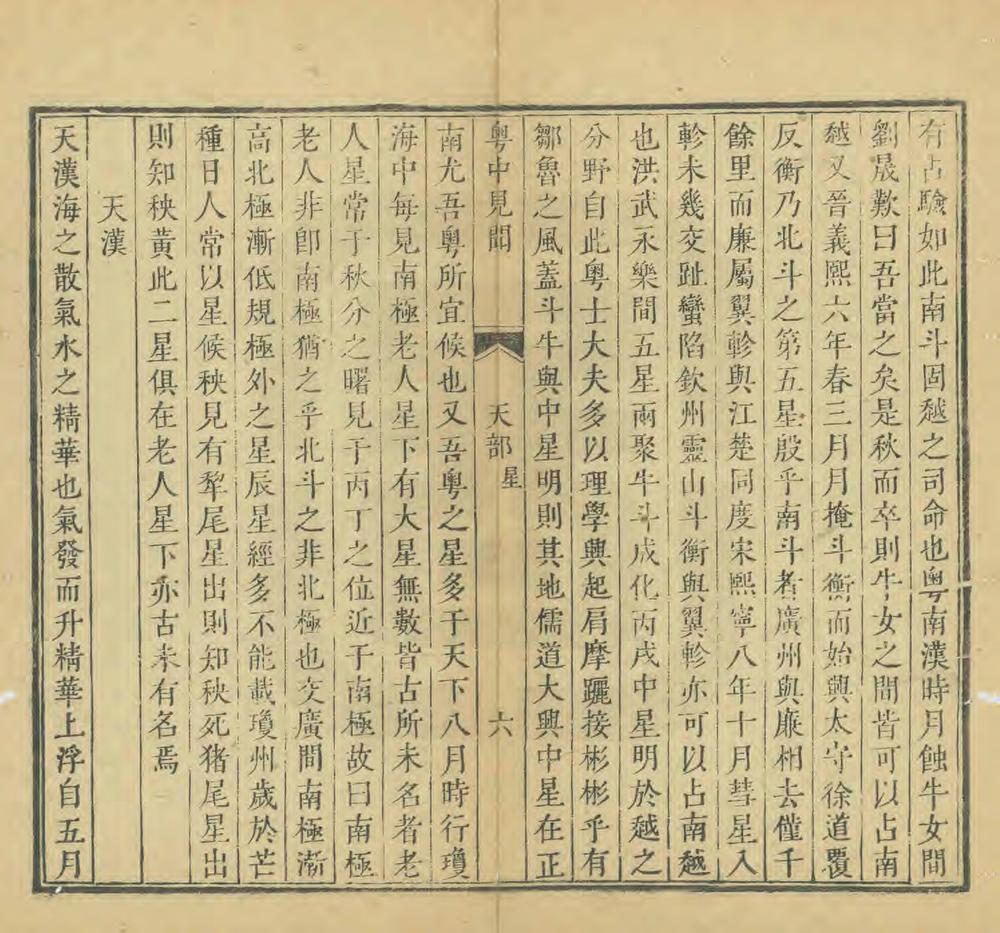 有占驗如此南斗固越之司命也粵南漢時月蝕牛女間
劉晟歎曰吾當之矣是秋而卒則牛女之間皆可以占南
越又晉義熙六年春三月月掩斗衡而始興太守徐道覆
反衡乃北斗之第五星殷乎南斗者廣州與廉相去僅千
餘里而廉屬翼軫與江楚同度宋熙寧八年十月彗星入
軫未幾交趾蠻陷欽州靈山斗衡與翼軫亦可以占南越
也洪武永樂間五星兩聚牛斗成化丙戌中星明於越之
分野自此粵士大夫多以理學興起肩摩躧接彬彬乎有
鄒魯之風蓋斗牛與中星明則其地儒道大興中星在正
粵中見聞 天部 星 六
南尤吾粵所宜候也又吾粵之星多于天下八月時行瓊
海中每見南極老人星下有大星無數皆古所未名者老
人星常于秋分之曙見于丙丁之位近于南極故曰南極
老人非卽南極猶之乎北斗之非北極也交廣間南極漸
高北極漸低規極外之星辰星經多不能載瓊州歲於芒
種日人常以星候秧見有犂尾星出則知秧死猪尾星出
則知秧黃此二星俱在老人星下亦古未有名焉
天漢
天漢海之散氣水之精華也氣發而升精華上浮自五月